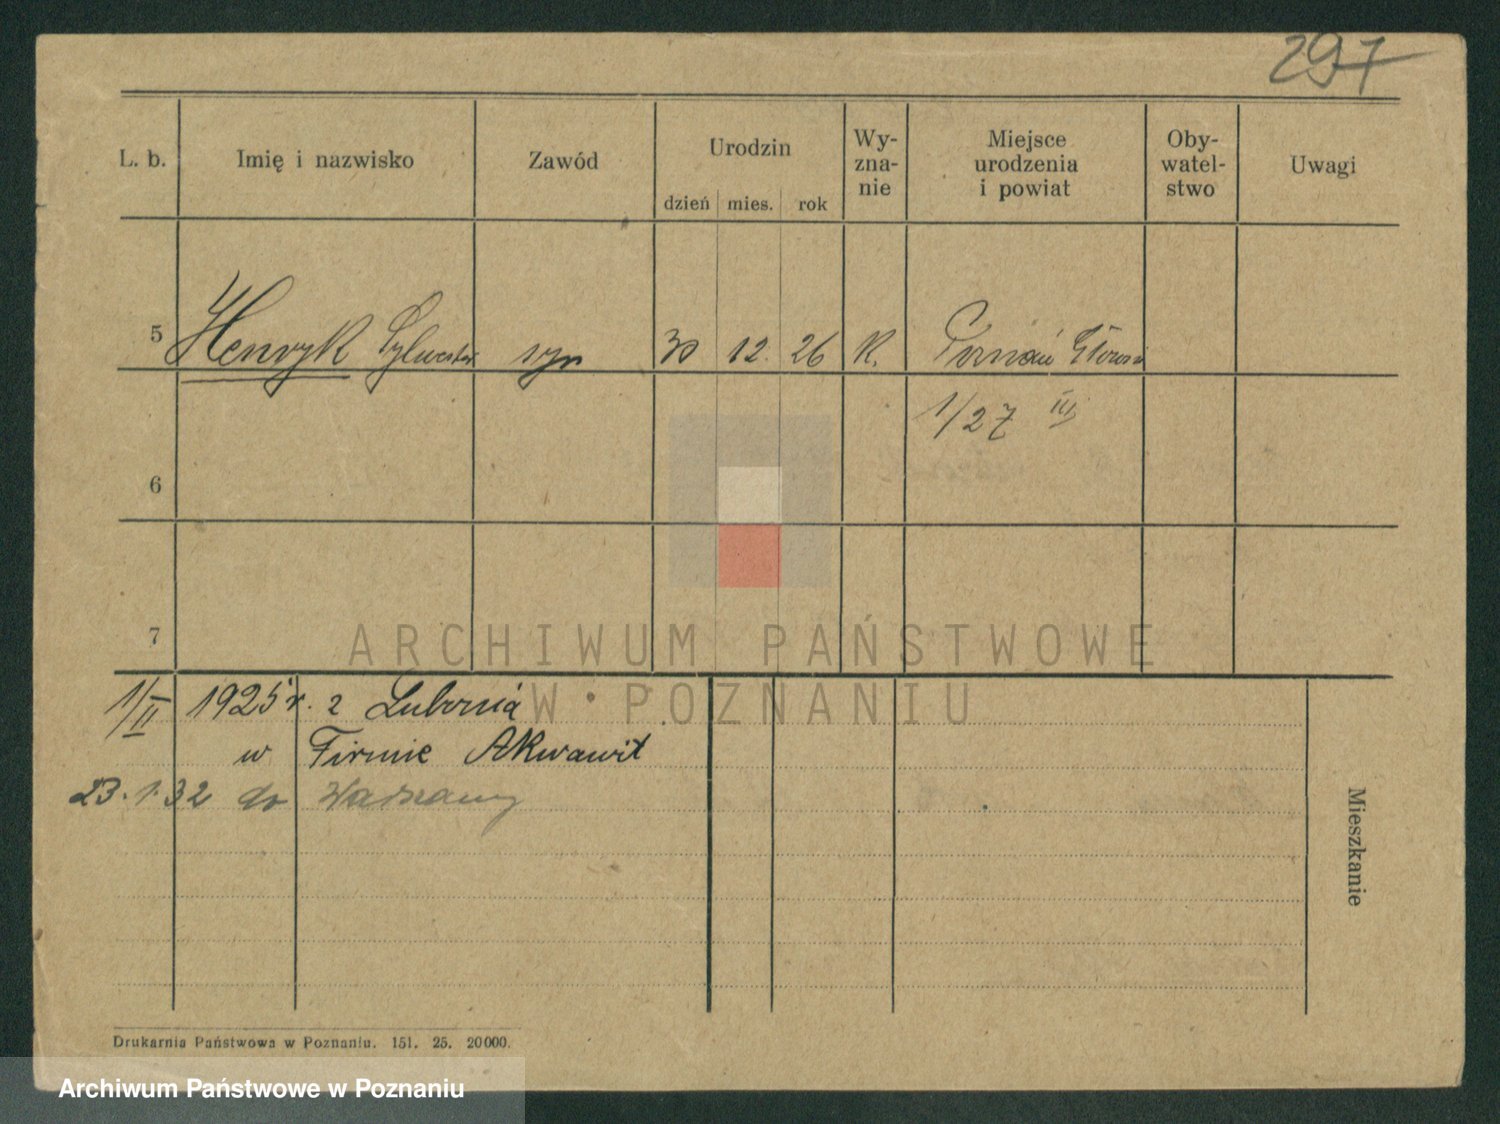 297
L. b. Imię i nazwisko Zawód Urodzin dzień mies. rok Wy-zna-nie Miejsce urodzenia i powiat Oby-watel-stwo Uwagi
5 Henryk Sylwester syn 30 12. 26 K. Poznań Główna
1/27 III
6
7
ARCHIWUM PAŃSTWOWE
W POZNANIU
1/II 1925 r. z Lubonia
w Firmie Akwawit
23.1.32 do Warszawy
Mieszkanie
Drukarnia Państwowa w Poznaniu. 151. 25. 20000.
Archiwum Państwowe w Poznaniu